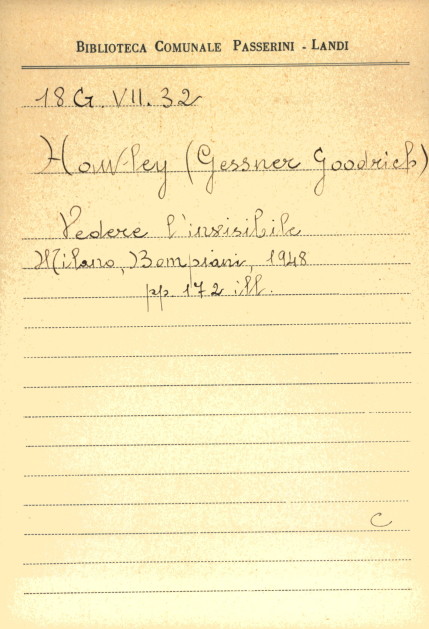 BIBLIOTECA COMUNALE PASSERINI - LANDI
18 G. VII. 32
Hawley (Gessner Goodrich)
Vedere l'invisibile
Milano, Bompiani, 1948
pp. 172 ill.
C